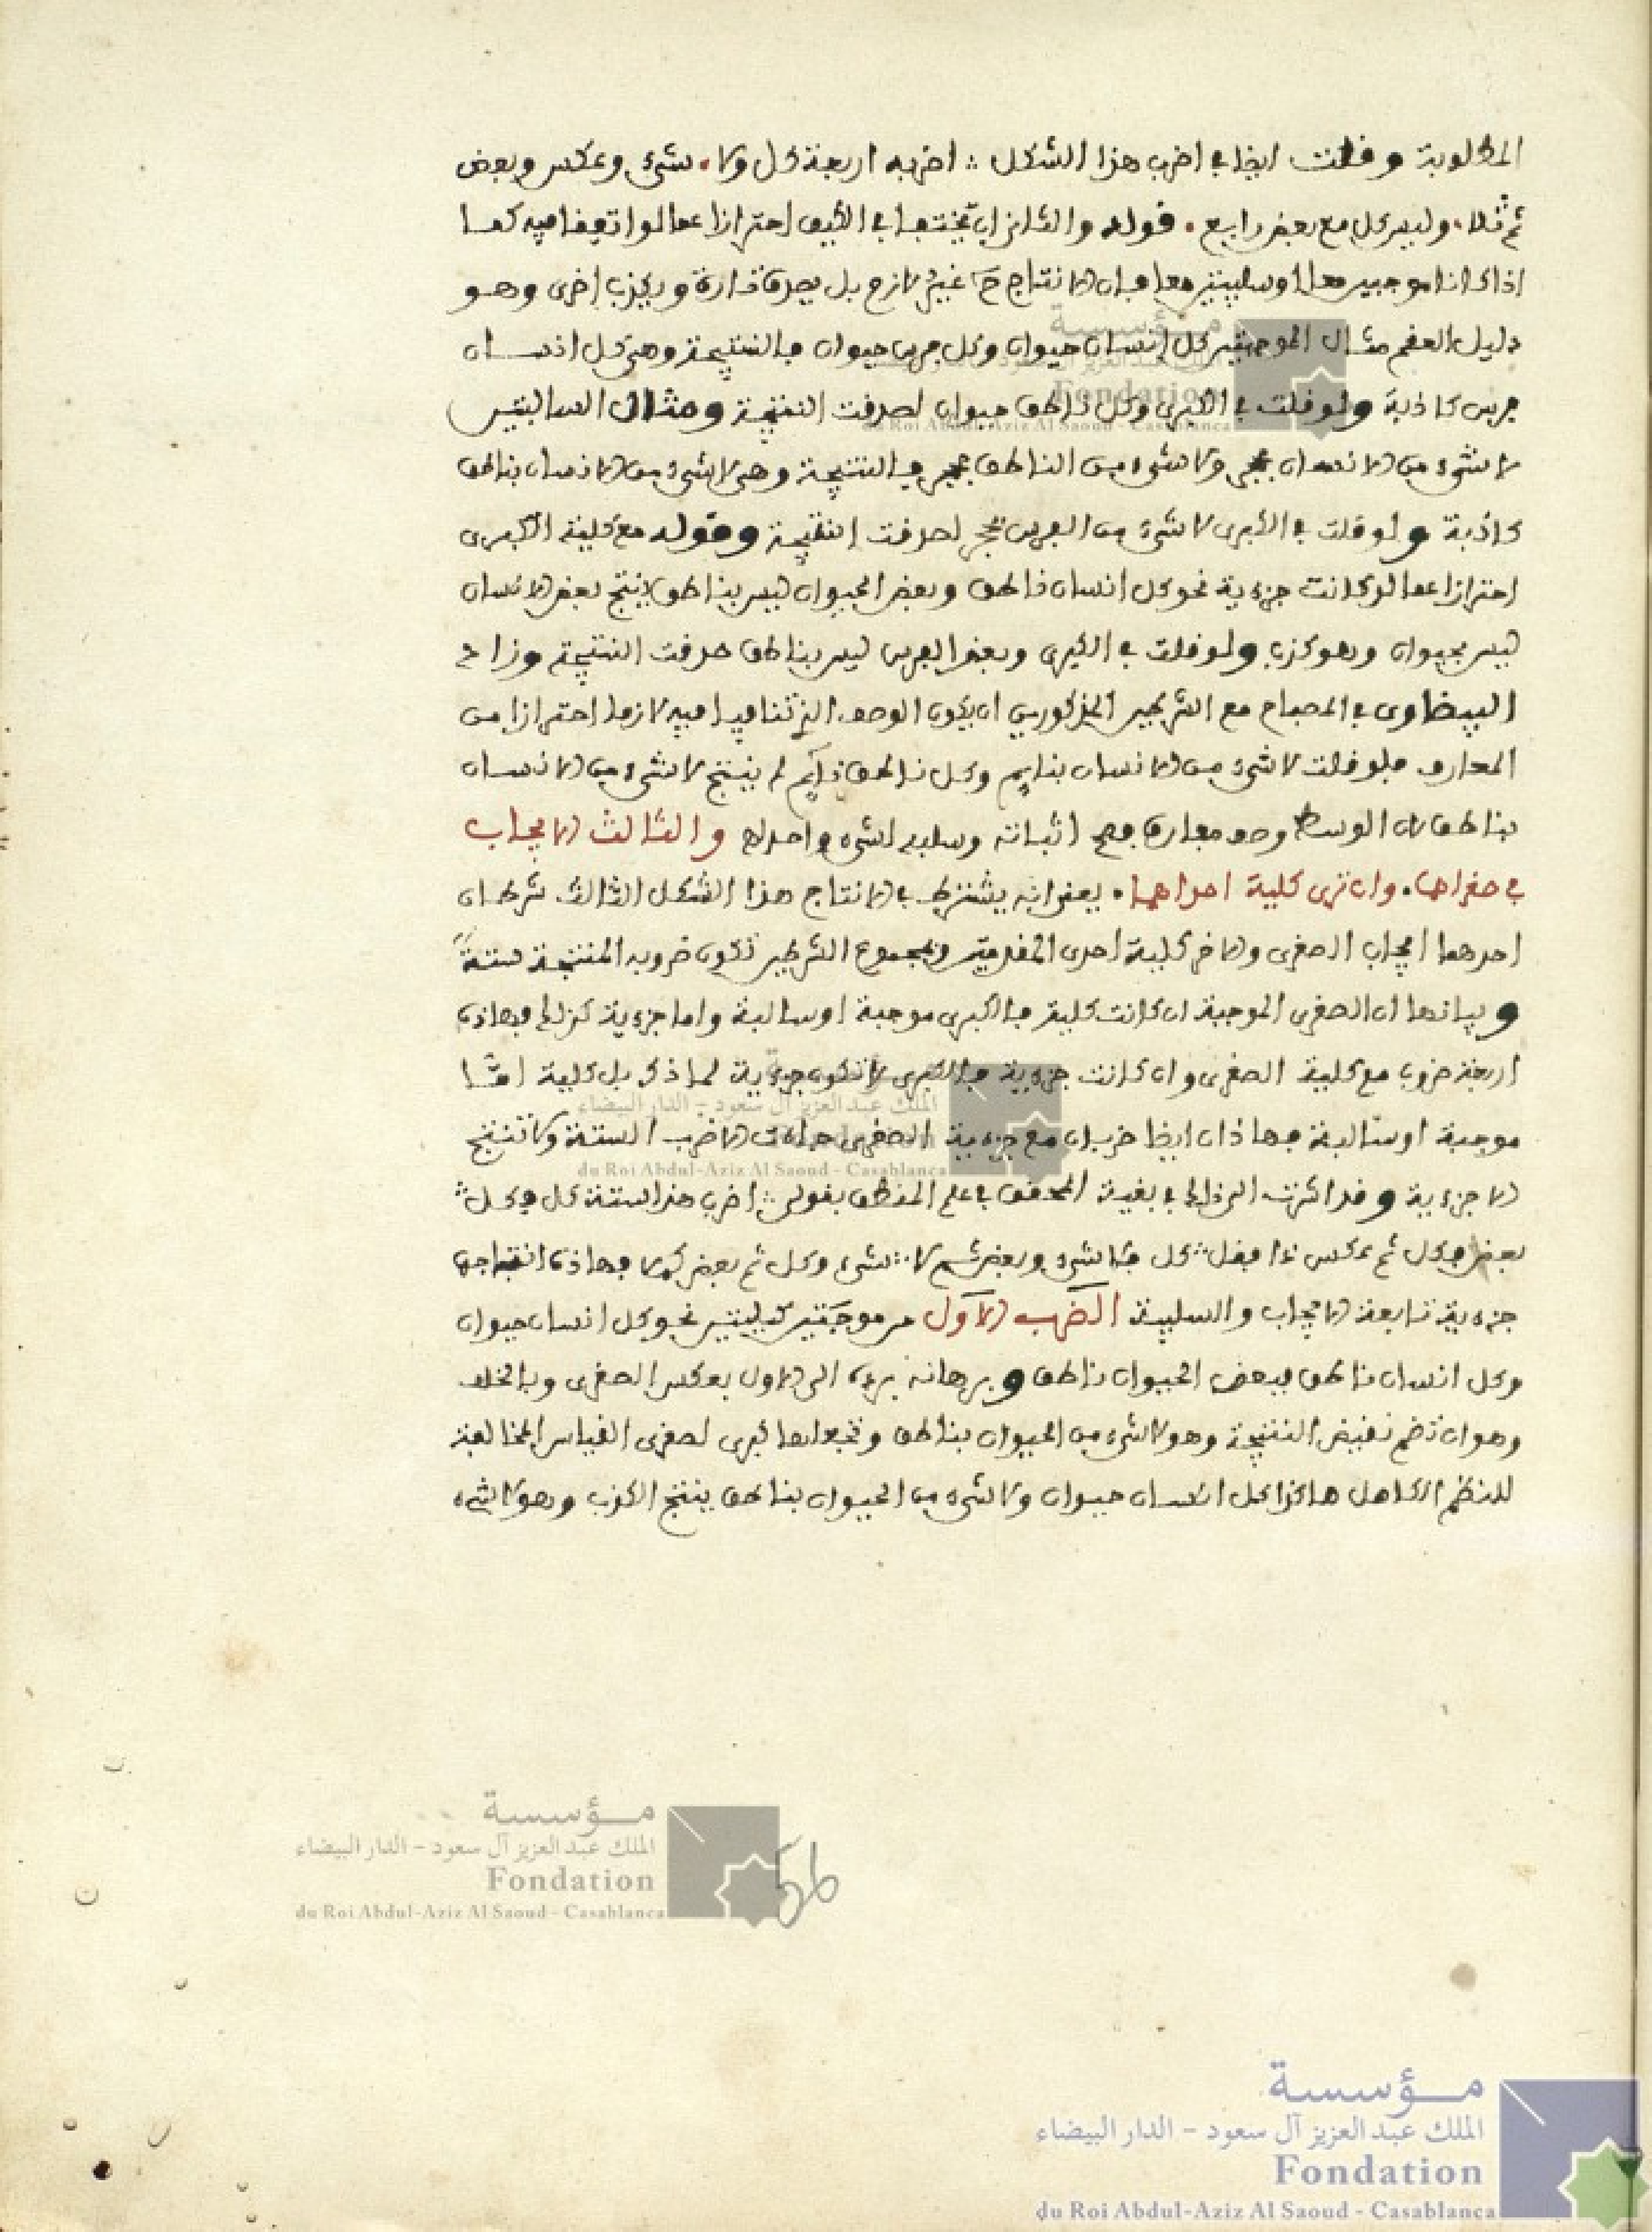 المطلوبة وقلت ايضا في اضرب هذا الشكل ∴ اضربه اربعة كل ولا . شيء وعكس وبعض
ثم ثلا . وليس كل مع بعض رابع . قوله والثان ان تختلفا في الكيف احترازا عما لو اتفقا فيه كما
اذا كانتا موجبتين معا او سالبتين معا فان الانتاج ح غير لازم بل يصدق تارة ويكذب اخرى وهو
دليل العقم مثال الموجبتين كل انسان حيوان وكل فرس حيوان فالنتيجة وهي كل انسان
فرس كاذبة ولو قلت في الكبرى وكل ناطق حيوان لصدقت النتيجة ومثال السالبتين
لا شيء من الانسان بحجر ولا شيء من الناطق بحجر فالنتيجة وهي لا شيء من الانسان بناطق
كاذبة ولو قلت في الكبرى لا شيء من الفرس بحجر لصدقت النتيجة وقوله مع كلية الكبرى
احترازا عما لو كانت جزءية نحو كل انسان ناطق وبعض الحيوان ليس بناطق لا ينتج بعض الانسان
ليس بحيوان وهو كذب ولو قلت في الكبرى وبعض الفرس ليس بناطق صدقت النتيجة وزاد
البيضاوي في المصباح مع الشرطين المذكورين ان يكون الوصف الذي تنافيا فيه لازما احترازا من
المعارف فلو قلت لا شيء من الانسان بنايم وكل ناطق نايم لم ينتج لا شيء من الانسان
بناطق لان الوسط وصف مفارق فصح اثباته وسلبه لشيء واحد والثالث الايجاب
في صغراهما . وان ترى كلية احداهما . يعني انه يشترط في الانتاج هذا الشكل الثالث شرطان
احدهما ايجاب الصغرى والاخر كلية احدى المقدمتين وبمجموع الشرطين تكون ضروبه المنتجة ستة
وبيانها ان الصغرى الموجبة ان كانت كلية فالكبرى موجبة او سالبة واما جزءية كذلك فهاذه
اربعة ضروب مع كلية الصغرى وان كانت جزءية فالكبرى لا تكون جزءية لما ذكر بل كلية امّا
موجبة او سالبة فهاذان ايضا ضربان مع جزءية الصغرى فهاذه الاضرب الستة ولا تنتج
الا جزءية وقد اشرت الى ذالك في بغية المحقق في علم المنطق بقولي ∴ اضرب هذا ستة كل وكل ∴
بعض وكل ثم عكس ذا فقل ∴ كل فلا شيء وبعض ثم لا ∴ شيء وكل ثم بعض فهاذه انتاجها
جزءية تابعة الايجاب والسلبية الضرب الاول من موجبتين كليتين نحو كل انسان حيوان
وكل انسان ناطق فبعض الحيوان ناطق وبرهانه برده الى الاول بعكس الصغرى وبالخلف
وهو ان تضم نقيض النتيجة وهو لا شيء من الحيوان بناطق وتجعلها كبرى لصغرى القياس المخالفة
للنظم الكامل هاكذا كل انسان حيوان ولا شيء من الحيوان بناطق ينتج الكذب وهو لا شيء
مؤسسة
الملك عبد العزيز آل سعود - الدار البيضاء
Fondation
du Roi Abdul-Aziz Al Saoud - Casablanca
56
مؤسسة
الملك عبد العزيز آل سعود - الدار البيضاء
Fondation
du Roi Abdul-Aziz Al Saoud - Casablanca